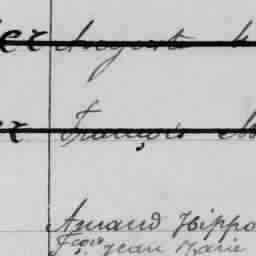 er Auguste
François
Amand Hippo
Fçois Jean Marie